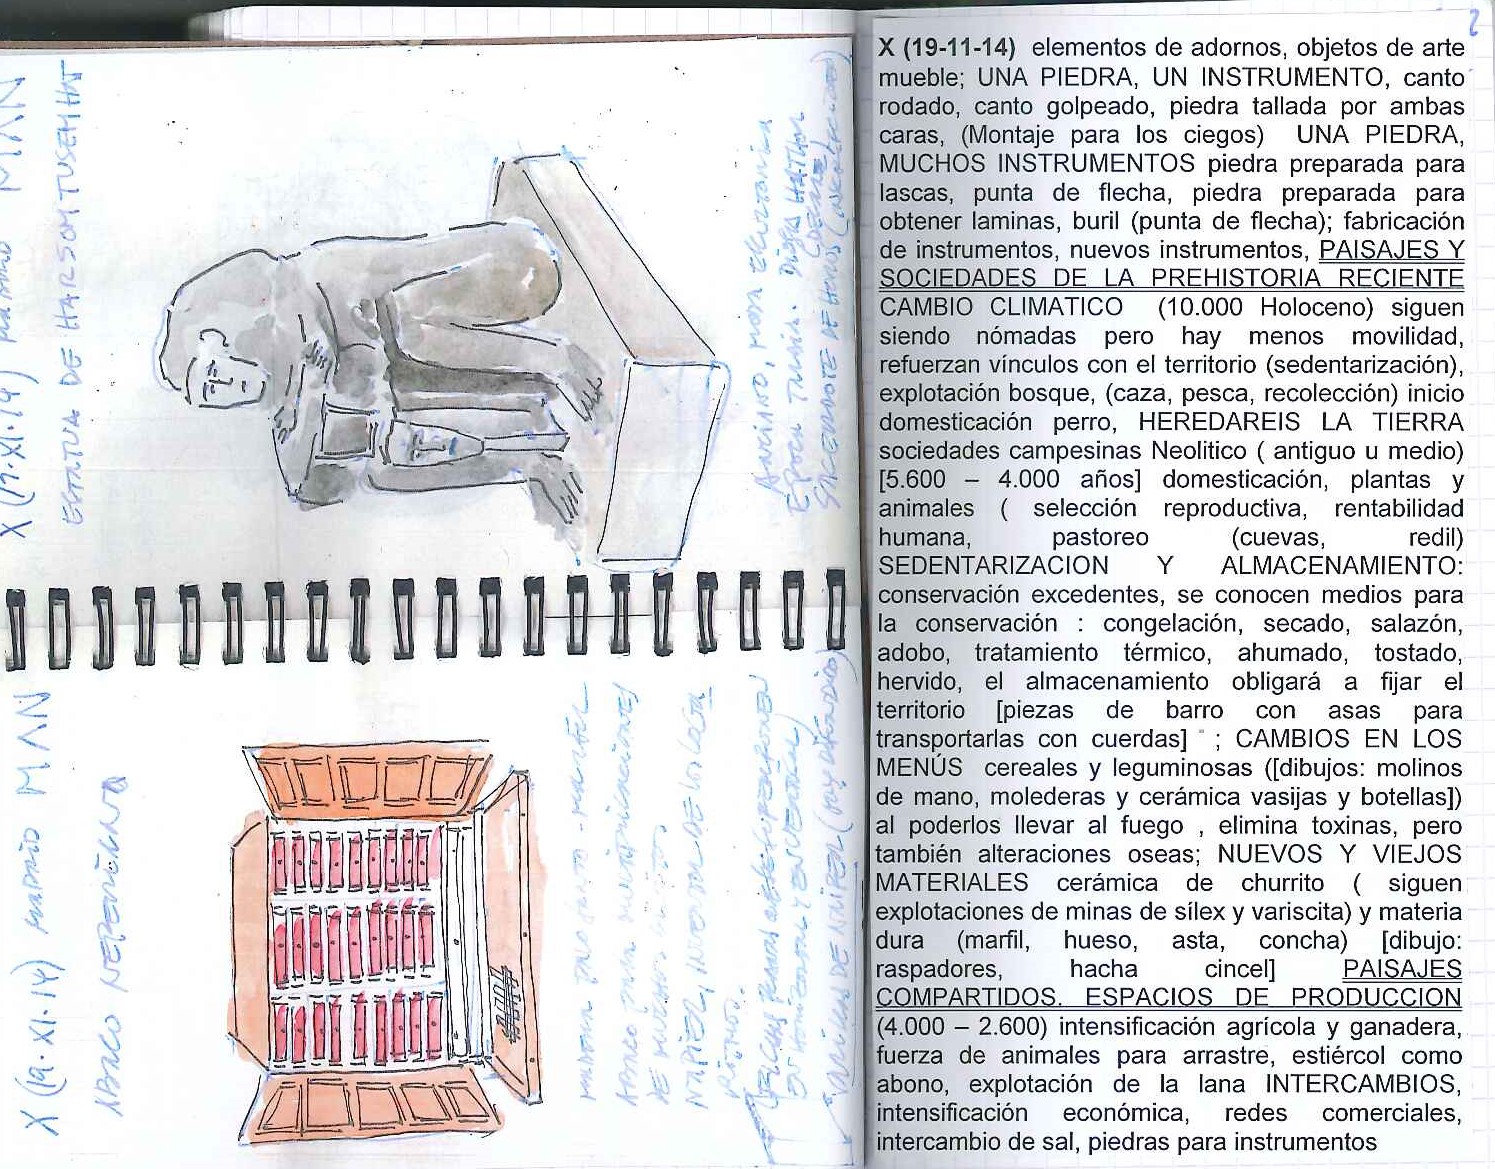 X (19·XI·14) MADRID MAN
ESTATUA DE HARSOMTUSEMHAT
X (19·XI·14) MADRID MAN
ABACO NEPERIANO
2
X (19-11-14) elementos de adornos, objetos de arte
mueble; UNA PIEDRA, UN INSTRUMENTO, canto
rodado, canto golpeado, piedra tallada por ambas
caras, (Montaje para los ciegos) UNA PIEDRA,
MUCHOS INSTRUMENTOS piedra preparada para
lascas, punta de flecha, piedra preparada para
obtener laminas, buril (punta de flecha); fabricación
de instrumentos, nuevos instrumentos, PAISAJES Y
SOCIEDADES DE LA PREHISTORIA RECIENTE
CAMBIO CLIMATICO (10.000 Holoceno) siguen
siendo nómadas pero hay menos movilidad,
refuerzan vínculos con el territorio (sedentarización),
explotación bosque, (caza, pesca, recolección) inicio
domesticación perro, HEREDAREIS LA TIERRA
sociedades campesinas Neolitico ( antiguo u medio)
[5.600 – 4.000 años] domesticación, plantas y
animales ( selección reproductiva, rentabilidad
humana, pastoreo (cuevas, redil)
SEDENTARIZACION Y ALMACENAMIENTO:
conservación excedentes, se conocen medios para
la conservación : congelación, secado, salazón,
adobo, tratamiento térmico, ahumado, tostado,
hervido, el almacenamiento obligará a fijar el
territorio [piezas de barro con asas para
transportarlas con cuerdas] ; CAMBIOS EN LOS
MENÚS cereales y leguminosas ([dibujos: molinos
de mano, molederas y cerámica vasijas y botellas])
al poderlos llevar al fuego , elimina toxinas, pero
también alteraciones oseas; NUEVOS Y VIEJOS
MATERIALES cerámica de churrito ( siguen
explotaciones de minas de sílex y variscita) y materia
dura (marfil, hueso, asta, concha) [dibujo:
raspadores, hacha cincel] PAISAJES
COMPARTIDOS. ESPACIOS DE PRODUCCION
(4.000 – 2.600) intensificación agrícola y ganadera,
fuerza de animales para arrastre, estiércol como
abono, explotación de la lana INTERCAMBIOS,
intensificación económica, redes comerciales,
intercambio de sal, piedras para instrumentos